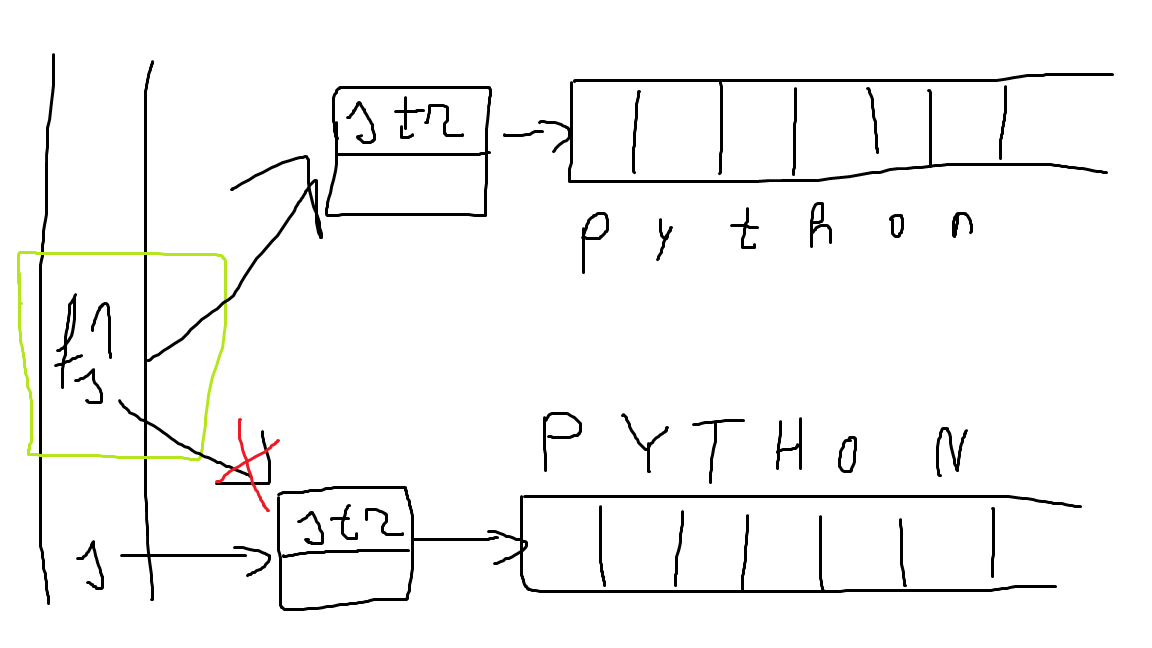 str
p y t h o n
f1
s
P Y T H O N
str
s